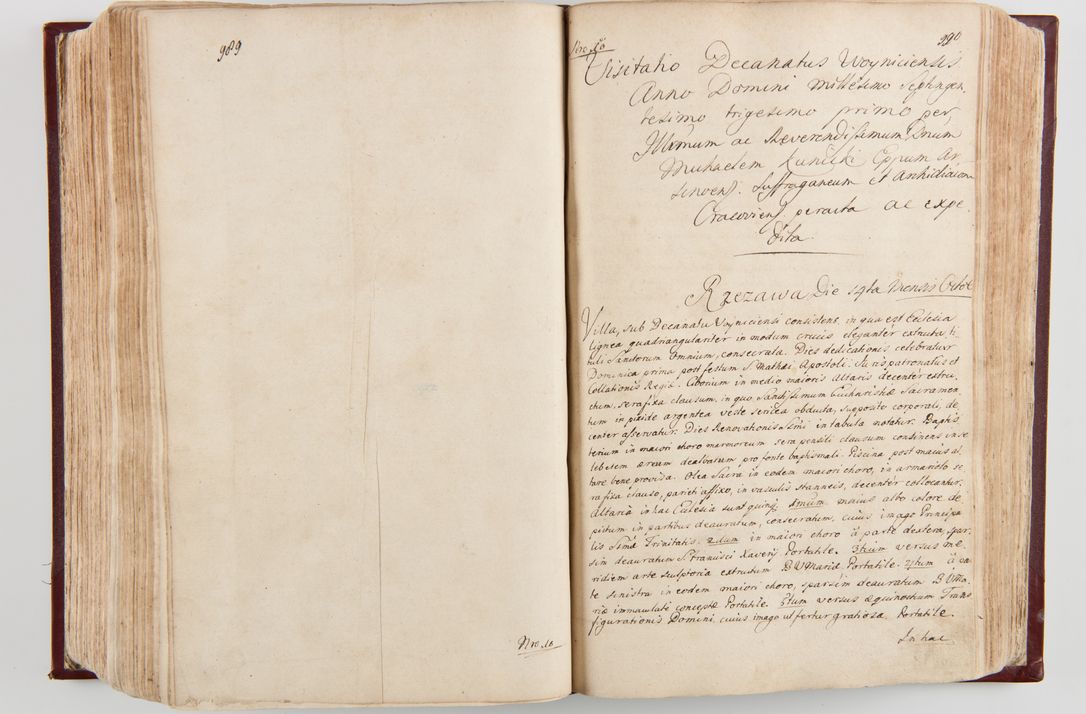 989
Nro. 10
Nro. 10
990
Visitatio Decanatus Woyniciensis
Anno Domini Millesimo Septingen
tesimo trigesimo primo per
Illmum ac Reverendissimum Dnum
Michaelem Kunicki Eppum Ar
sinoens. Suffraganeum et Archidiacon
Cracoviens. peracta ac expe
dita.
Rzezawa Die 14ta Mensis Octob
Villa, sub Decanatu Voyniciensi consistens, in qua est Ecclesia
lignea quadrangulariter in modum crucis eleganter extructa, ti
tuli Sanctorum Omnium, consecrata. Dies dedicationis celebratur
Dominica prima post festum S. Mathæi Apostoli. Juris patronatus et
Collationis Regiæ. Ciborium in medio maioris Altaris decenter extru,
ctum, sera fixa clausum, in quo Sanctissimum Eucharistiæ Sacramen
tum in pixide argentea veste sericea obducta, supposito corporali, de,
center asservatur. Dies Renovationis SSmi in tabula notatur. Baptis
terium in maiori choro marmoreum sera pensili clausum continens in se
lebetem æreum dealbatum pro fonte baptismali. Piscina post maius al
tare bene provisa. Olea Sacra in eodem maiori choro, in armariolo se
ra fixa clauso, parieti affixo, in vasculis stanneis, decenter collocantur.
Altaria in hac Ecclesia sunt quinq; 1mum maius albo colore de
pictum in partibus deauratum, consecratum, cuius imago Principa
lis SSmæ Trinitatis. 2dum in maiori choro à parte dextera, spar
sim deauratum S Francisci Xaverij Portatile. 3tium versus me
ridiem arte sculptoria extructum B.V.Mariæ Portatile. 4tum à pa
te sinistra in eodem maiori choro, sparsim deauratum B.V.Ma
riæ immaculatè conceptæ Portatile. 5tum versus æquinoctium Trans
figurationis Domini, cuius imago ut fertur gratiosa, Portatile.
In hac